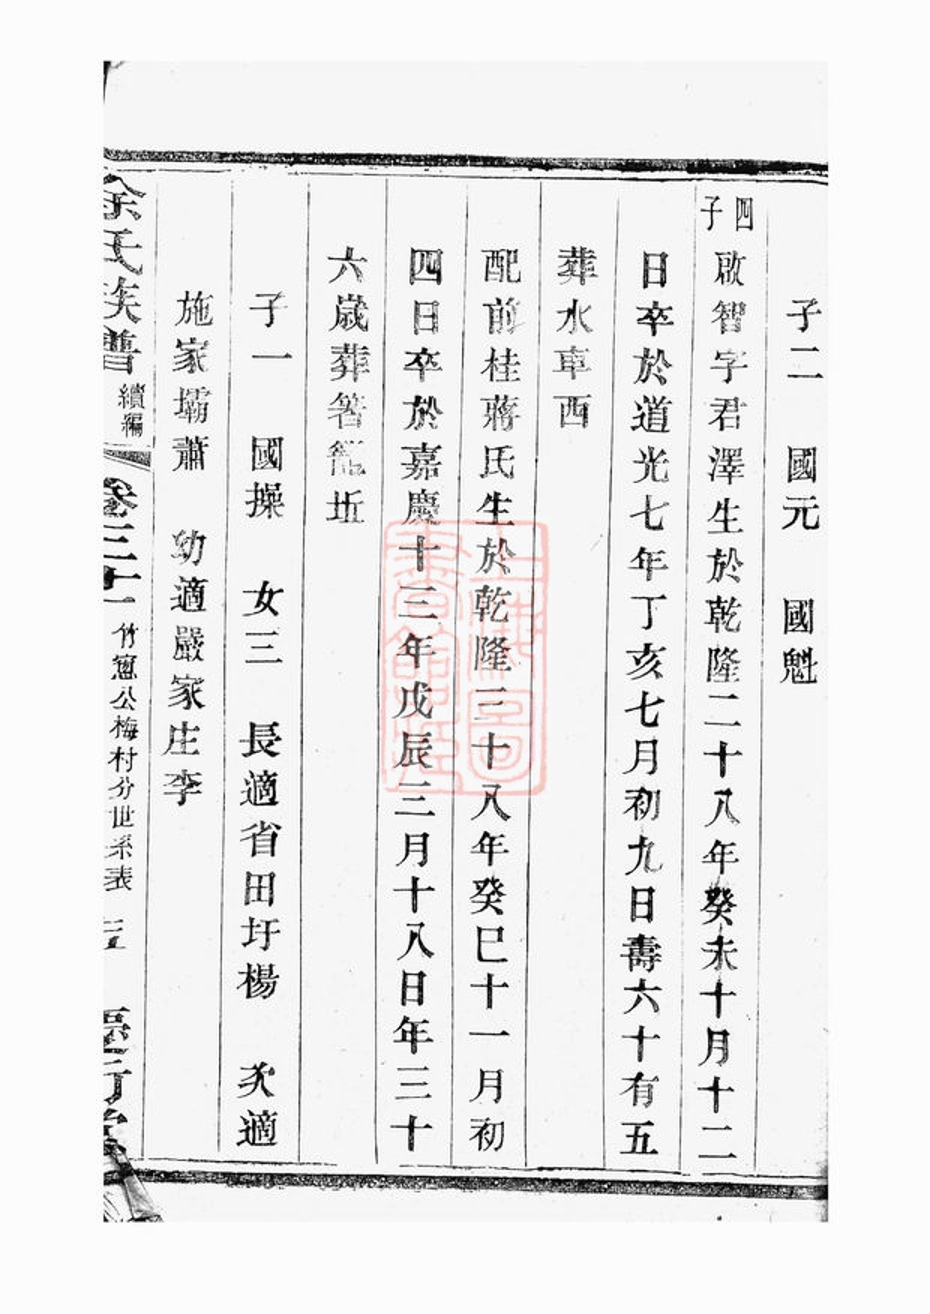 子二 國元 國魁
四子
啟智字君澤生於乾隆二十八年癸未十月十二
日卒於道光七年丁亥七月初九日壽六十有五
葬水車西
配前桂蔣氏生於乾隆三十八年癸巳十一月初
四日卒於嘉慶十三年戊辰三月十八日年三十
六歲葬箬㘰
子一 國操 女三 長適省田圩楊 次適
施家壩蕭 幼適嚴家庄李
余氏族譜 續編 卷三十一 竹窻公梅村分世系表 三
上海圖書館藏